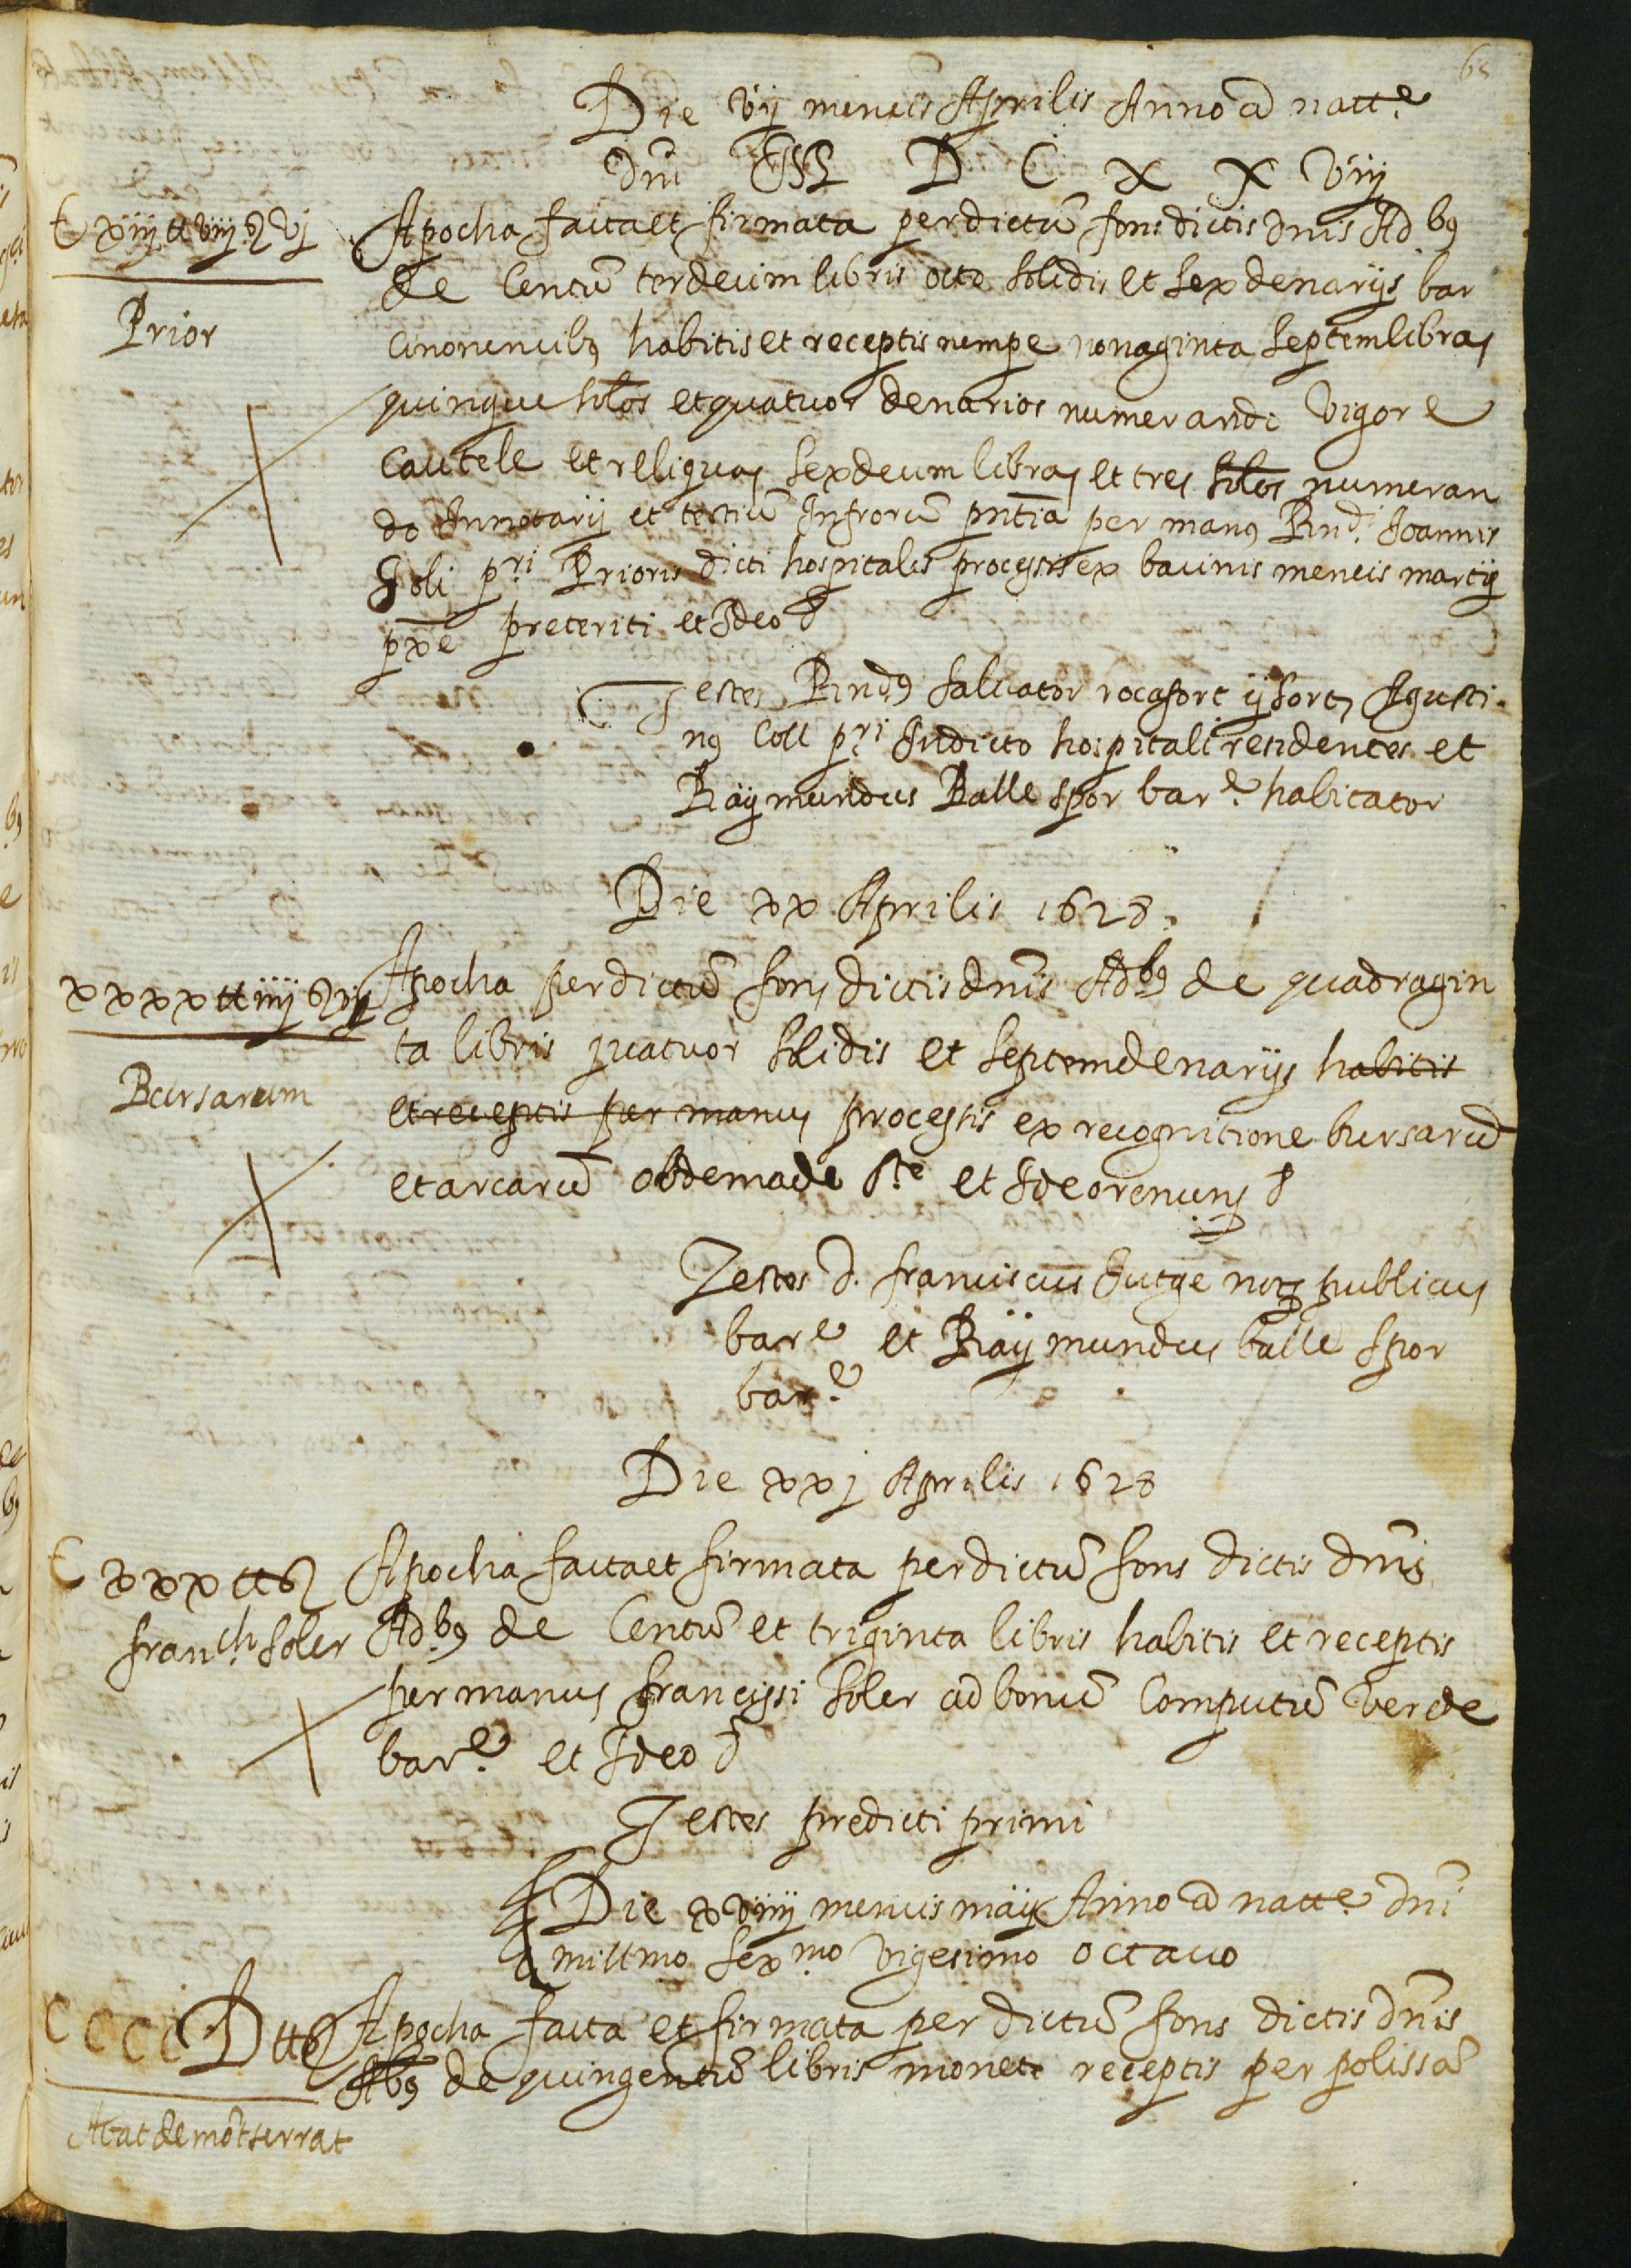 65
Die vij mencis Aprilis Anno a natte
dni M D C X X viij
C xiij tt viij s vj
Apocha facta et firmata per dictu fons dictis dnis Ad.b9
de Centu terdecim libris octo solidis et sex denarijs bar
Prior
cinonencib9 habitis et receptis nempe nonaginta septem libras
quinque solos et quatuor denarios numerandi vigore
cautele et reliquas sexdecim libras et tres solos numeran
do In notarij et testiu Infrorū pntia per man9 Rnd.i Joannis
Soli p.ri Prioris dicti hospitalis processis ex bacinis mencis martij
pxe preteriti et Ideo &
Testes Rnd9 saluator rocafort Agusti
n9 Coll p.ri In dicto hospitali residentes et
Raymundus Balle spor bar.e habitator
Die xx Aprilis 1628.
xxxx tt iiij s vij
Apocha per dictū fons dictis dnis Ad.b9 de quadragin
ta libris quatuor solidis et septem denarijs habitis
Bursarum
et receptis per manus processis ex recognitione bursarū
et arcarū obdemade s.te et Ideo renuns &
Testes d. franciscus Jutge nots publicus
bar.e et Raymundus balle spor
bar.e
Die xxj Aprilis 1628
C xxx tt s
Apocha facta et firmata per dictū fons dictis dnis
fran.ch soler
Ad.b9 de Centū et triginta libris habitis et receptis
per manus francissi soler ad bonū Computū ver de
bar.e et Ideo &
Testes predicti primi
Die xviiij mencis maij Anno a natte dni
millmo sex.mo vigesimo octauo
CCCC D tt s
Apocha facta et firmata per dictū fons dictis dnis
Ab9 de quingentū libris monete receptis per polissā
Abat de mōtserrat